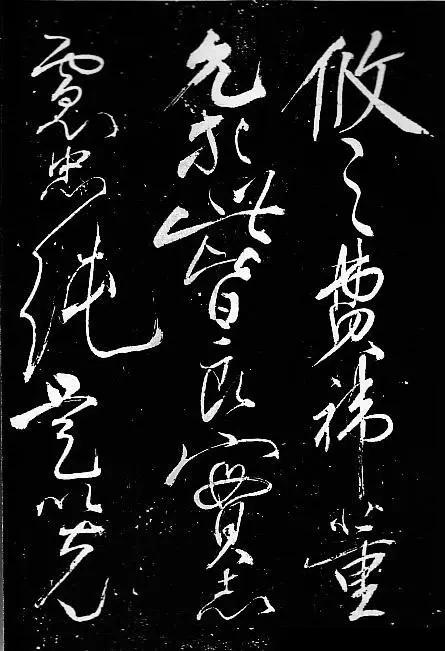 攸之費禕董
允等此皆良實志
慮忠純是以先